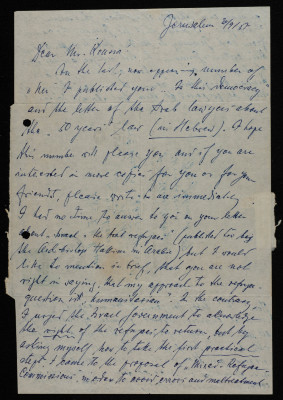 Jerusalem
Dear Mr.
On the last, now appearing number of
"Ner" I published your "Is this democracy"
and the letter of the Arab lawyers about
the "50 years" law (in Hebrew). I hope
this number will please you and if you are
interested in more copies for you or for your
friends, please write to us immediately.
I had no time to answer to you on your letter
Israel the
the Archbishop Hakim in Arabic) but I would
like to mention in brief, that you are not
right in saying that my approach to the refugee
question is "humanitarian". In the contrary,
I urged the Israel Government to acknowledge
the right of the refugees to return, but by
asking myself how to take the first practical
step I came to the proposal of "Mixed Refugee
Commissions" in order to avoid errors and maltreatment